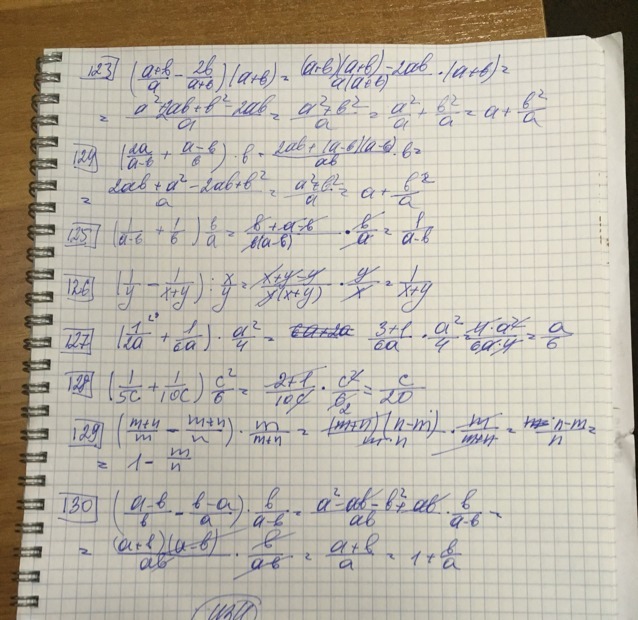 123 ((a+b)/a - 2b/(a+b)) (a+b) = ((a+b)(a+b) - 2ab)/(a(a+b)) · (a+b) =
= (a² + 2ab + b² - 2ab)/a = (a²+b²)/a = a²/a + b²/a = a + b²/a
124 (2a/(a-b) + (a-b)/b) · b = (2ab + (a-b)(a-b))/(ab) · b =
= (2ab + a² - 2ab + b²)/a = (a²+b²)/a = a + b²/a
125 (1/(a-b) + 1/b) b/a = (b+a-b)/(b(a-b)) · b/a = 1/(a-b)
126 (1/y - 1/(x+y)) · x/y = (x+y-y)/(y(x+y)) · y/x = 1/(x+y)
127 (1/2a + 1/6a) · a²/4 = (3+1)/6a · a²/4 = (4·a²)/(6a·4) = a/6
128 (1/5c + 1/10c) c²/6 = (2+1)/10c · c²/6 = c/20
129 ((m+n)/m - (m+n)/n) · m/(m+n) = ((m+n)(n-m))/(m·n) · m/(m+n) = (n-m)/n =
= 1 - m/n
130 ((a-b)/b - (b-a)/a) · b/(a-b) = (a² - ab - b² + ab)/ab · b/(a-b) =
= ((a+b)(a-b))/ab · b/(a-b) = (a+b)/a = 1 + b/a